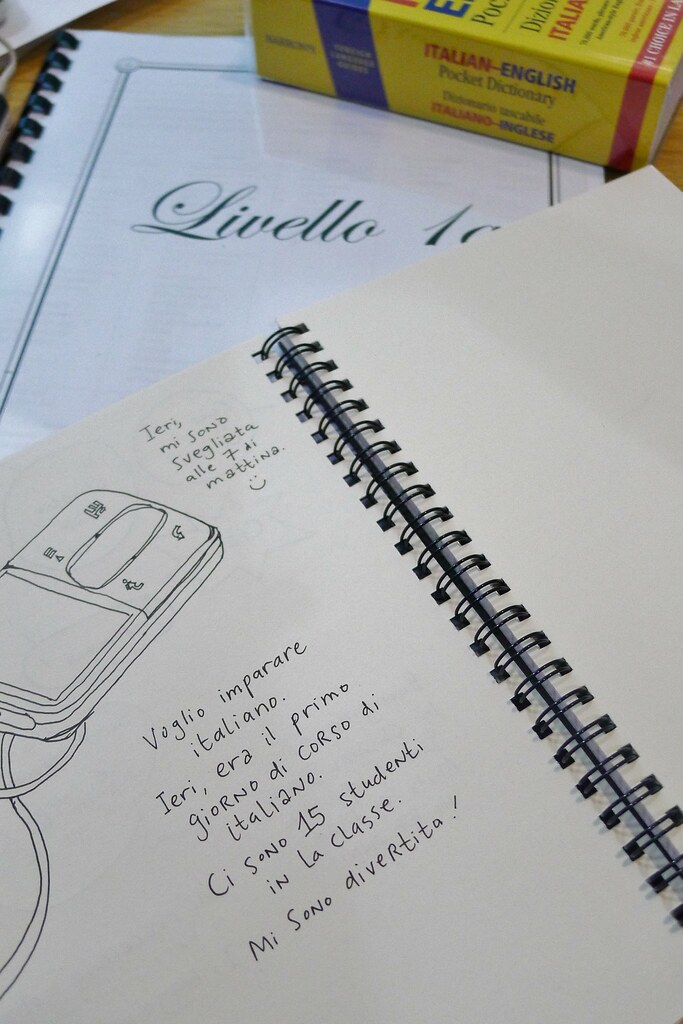 BARRON'S
FOREIGN
LANGUAGE
GUIDES
ITALIAN–ENGLISH
Pocket Dictionary
Dizionario tascabile
ITALIANO–INGLESE
#1 CHOICE IN LA
Livello 1a
Ieri,
mi sono
svegliata
alle 7 di
mattina.
Voglio imparare
italiano.
Ieri, era il primo
giorno di corso di
italiano.
Ci sono 15 studenti
in la classe.
Mi sono divertita!